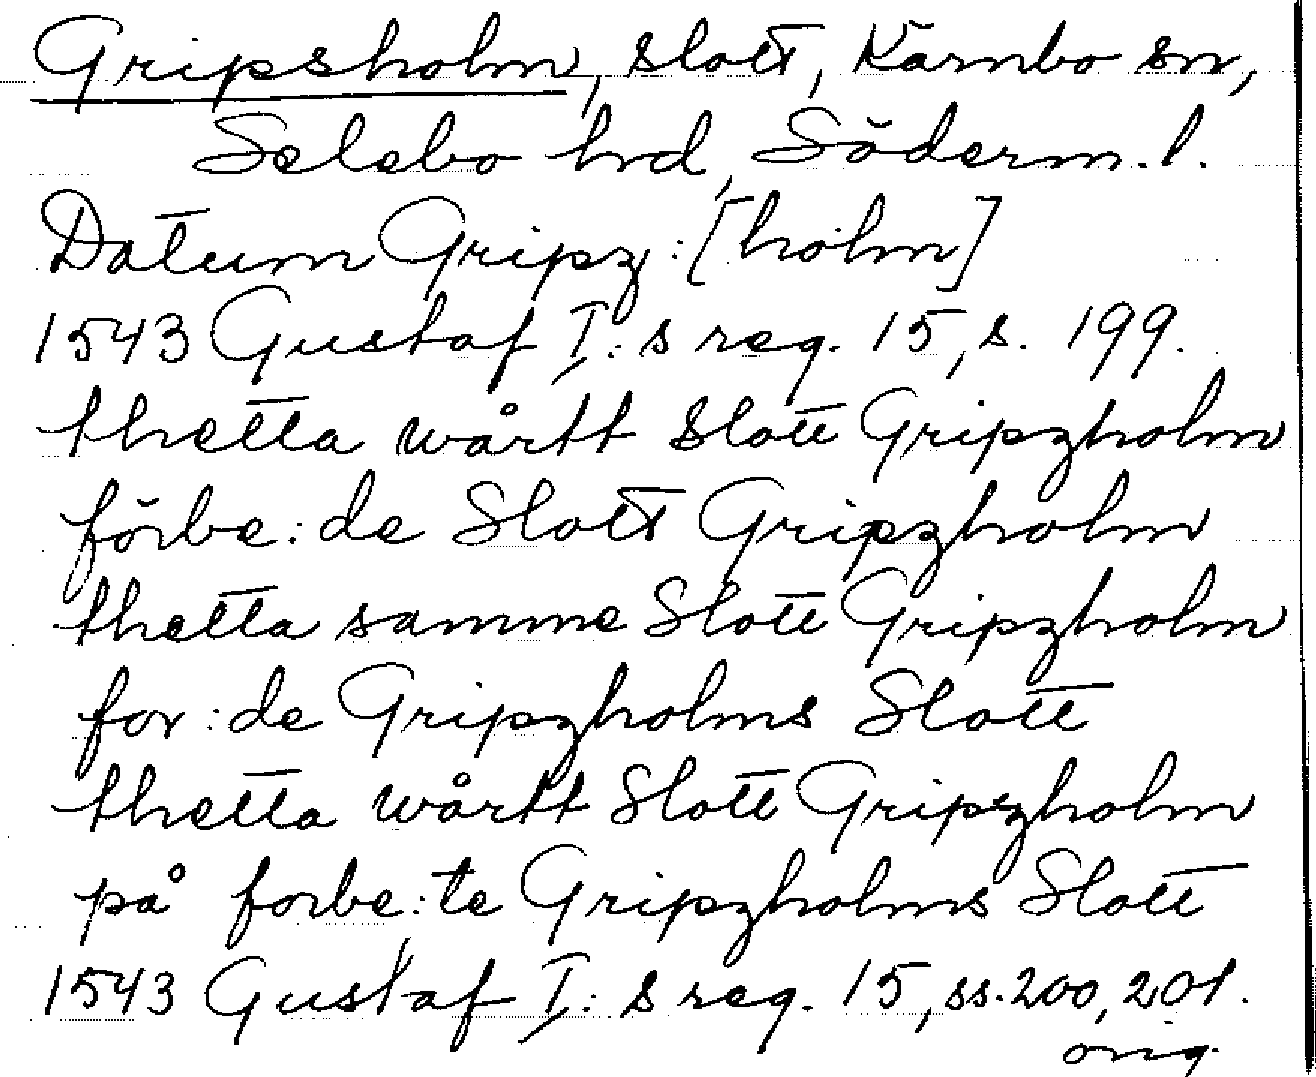 Gripsholm, slott, Kärnbo sn,
Selebo hrd, Söderm. l.
Datum Gripz: [holm]
1543 Gustaf I: s reg. 15, s. 199.
thetta wårtt Slott Gripzholm
förbe: de Slott Gripzholm
thetta samme Slott Gripzholm
for: de Gripzholms Slott
thetta wårtt Slott Gripzholm
på forbe: te Gripzholms Slott
1543 Gustaf I: s reg. 15, ss. 200, 201.
orig.